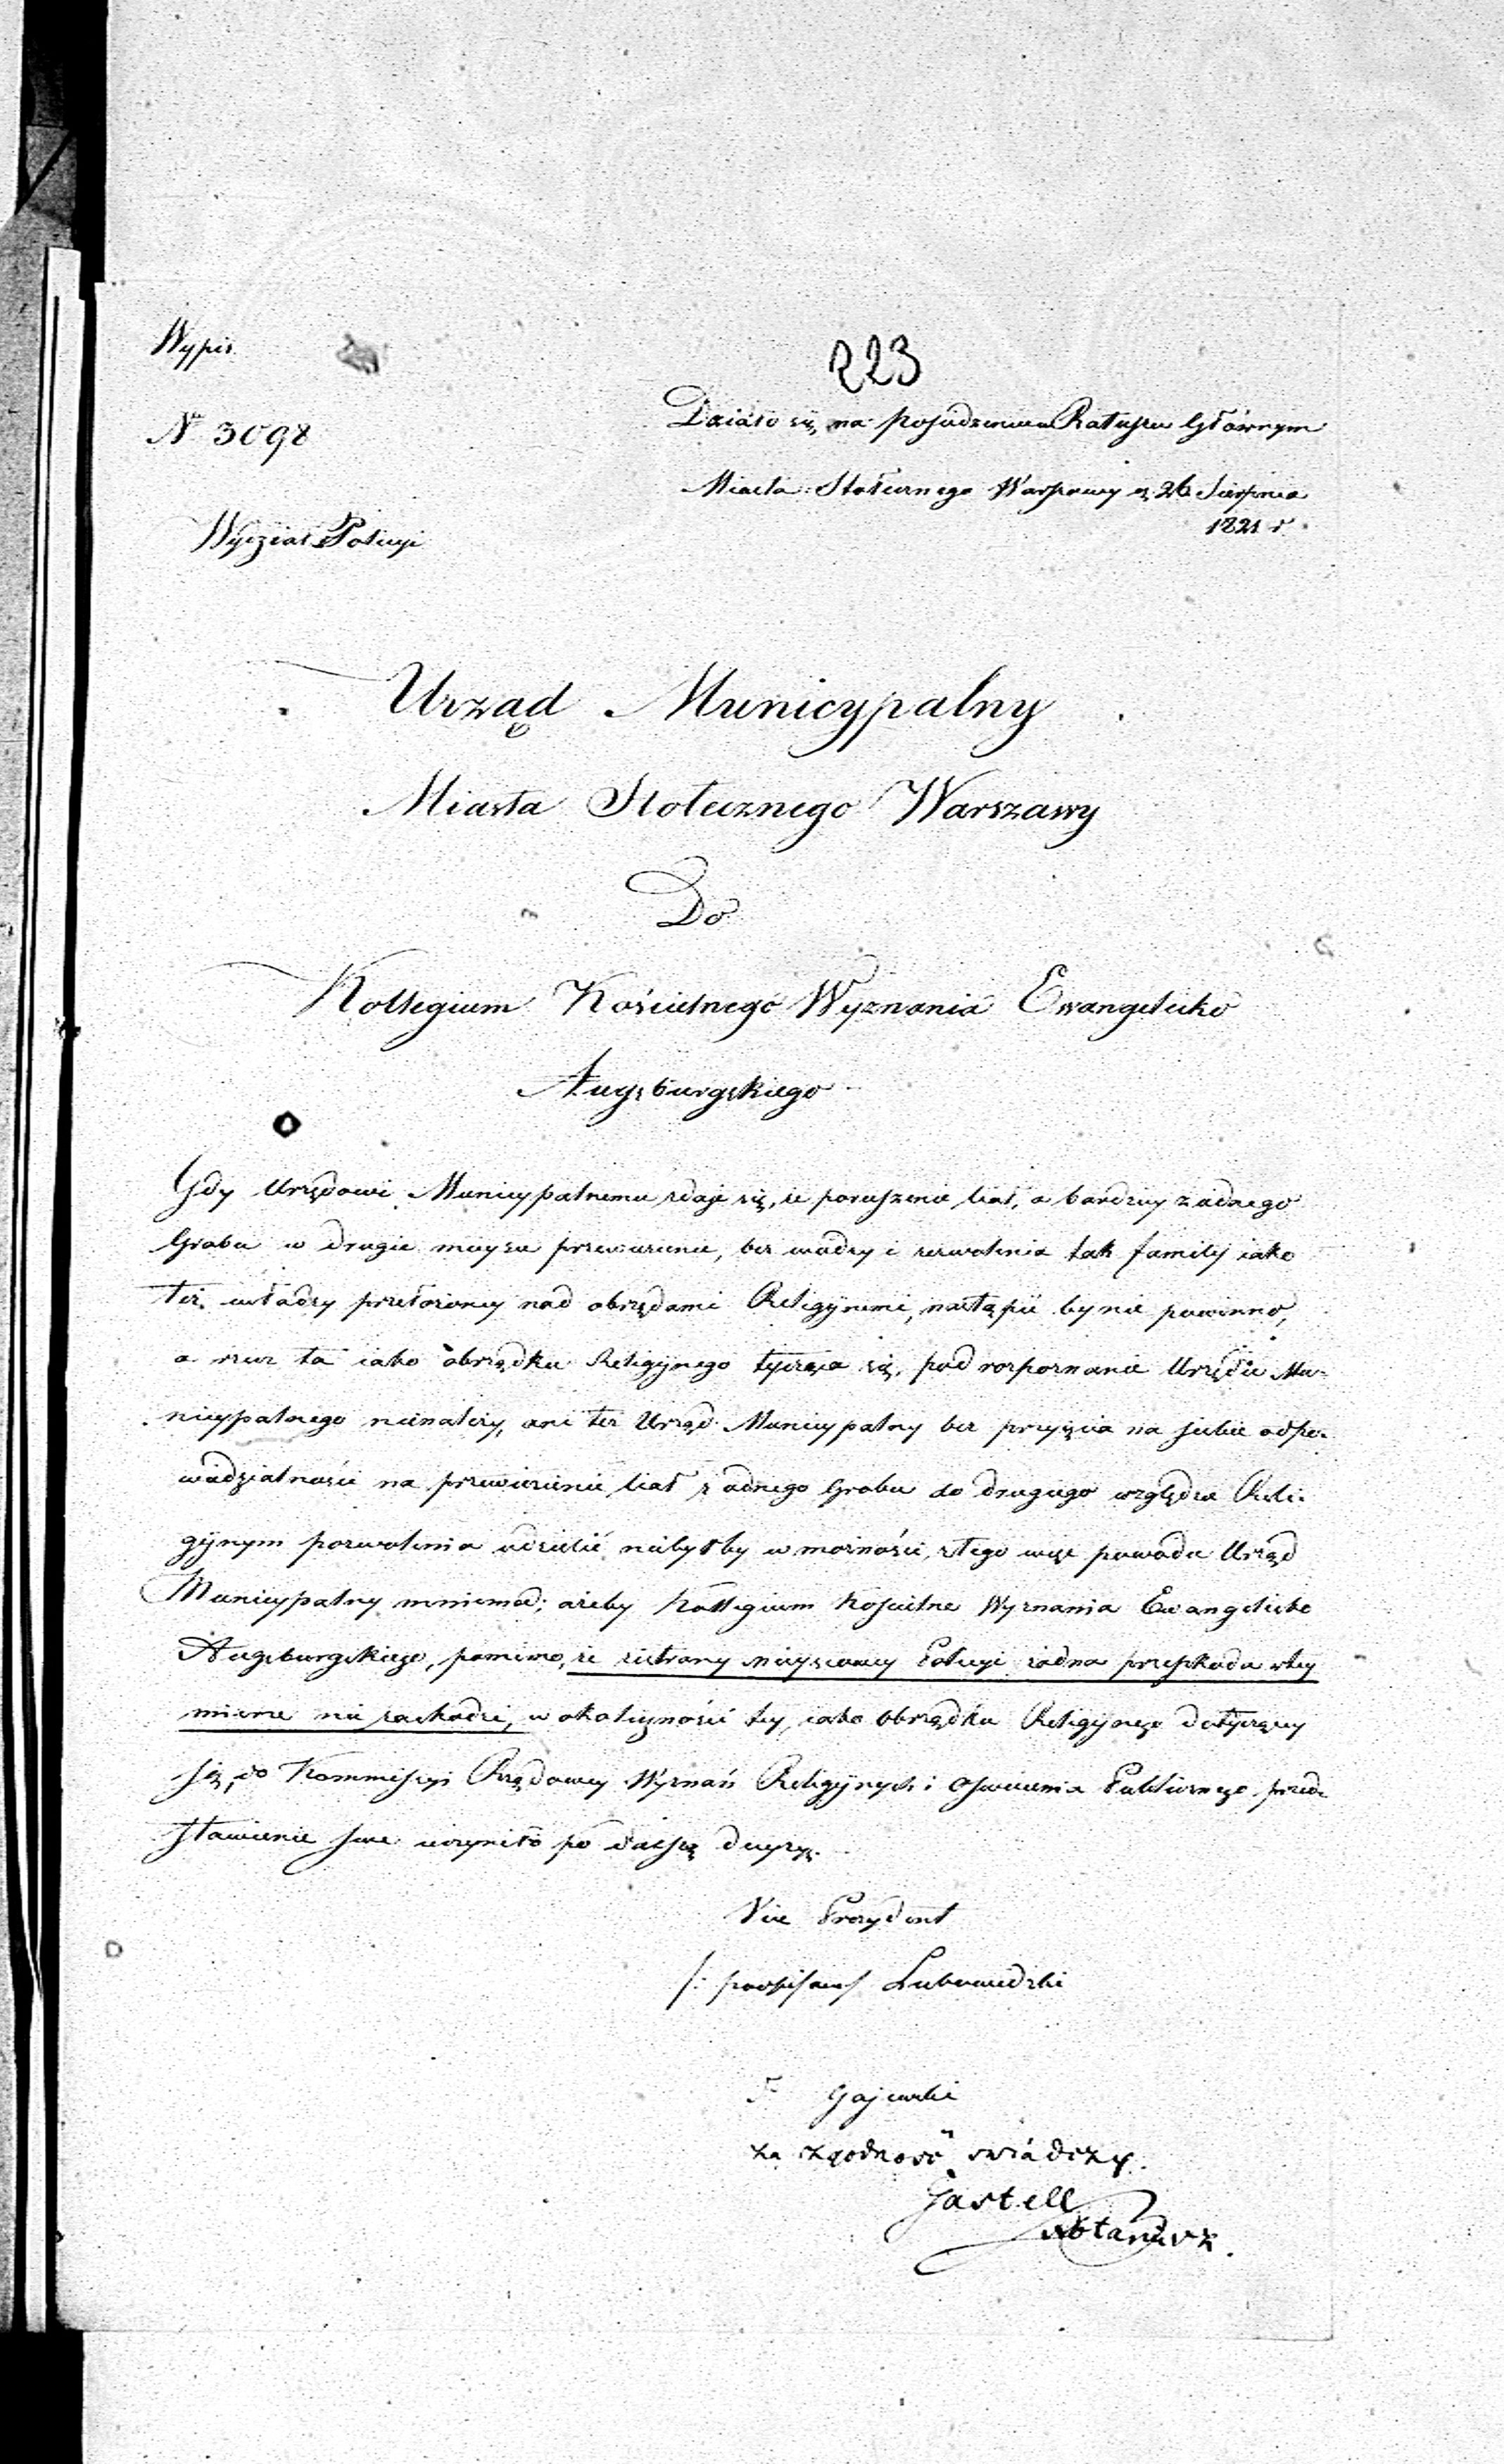 Wypis
223
Działo się na Posiedzeniu Ratuszu Głównym
N 3098
Miasta Stołecznego Warszawy d. 26 Sierpnia
1821 r.
Wydział Policyi
Urząd Municypalny
Miasta Stołecznego Warszawy
Do
Kollegium Kościelnego Wyznania Ewangelicko
Augsburgskiego
Gdy Urzędowi Municypalnemu zdaje się, że poruszenie ciał, a bardziey z iednego
Grobu w drugie mieysce przewiezienie, bez wiedzy i zezwolenia tak familij iako
też władzy przełożoney nad obrzędami Religijnemi, nastąpić by nie powinno,
a rzecz ta iako obrządku Religijnego tycząca się, pod rozpoznanie Urzędu Mu-
nicypalnego nienależy, ani też Urząd Municypalny bez przyięcia na siebie odpo-
wiedzialności na przewiezienie ciał z iednego Grobu do drugiego względem Reli-
gijnym pozwolenia udzielić niebyłby w możności, z tego więc powodu Urząd
Municypalny mniemał; ażeby Kollegium Kościelne Wyznania Ewangelicko
Augsburgskiego, pomimo, że ze strony mieyscowey Policyi żadna przeszkoda w tey
mierze nie zachodzi, w okoliczności tey, iako obrządku Religijnego dotyczącey
się, do Kommissyi Rządowey Wyznań Religijnych i Oświecenia Publicznego przed-
stawienie swe uczyniło po dalszą decyzyę.
Vice Prezydent
/: podpisany/ Lubowidzki
F Gajewski
za zgodność świadczy.
Jastell
Notariusz.